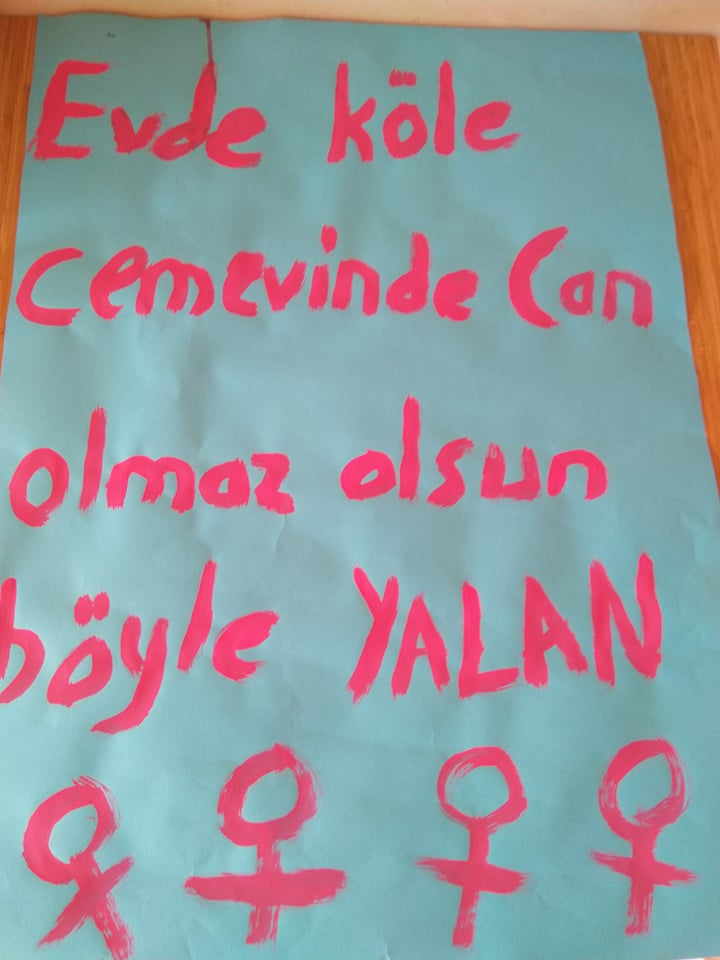 Evde köle
cemevinde Can
olmaz olsun
böyle YALAN